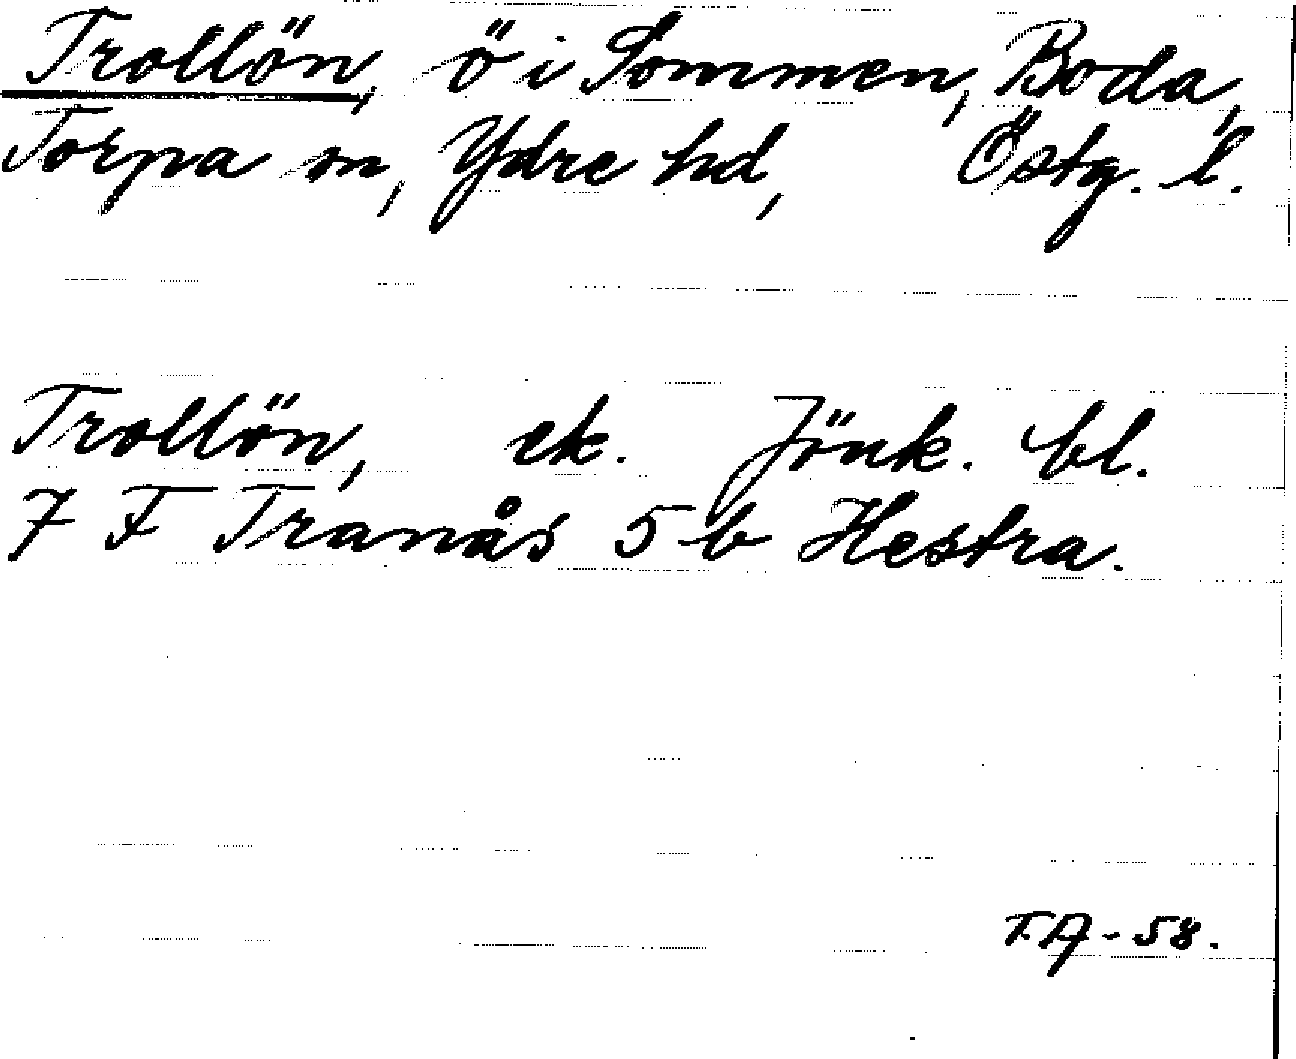 Trollön, ö i Sommen, Boda,
Torpa sn, Ydre hd, Östg. l.
Trollön, ek. Jönk. bl.
7 F Tranås 5 b Hestra.
T.A-58.